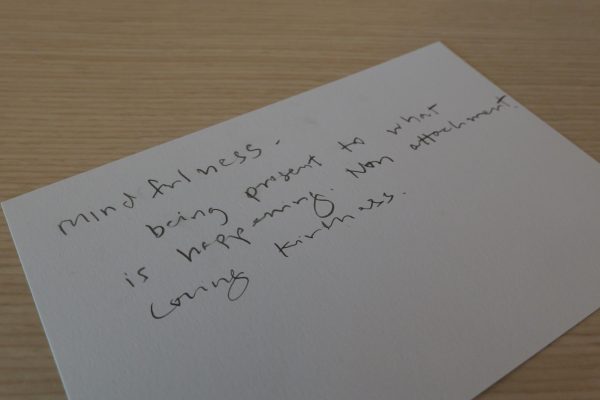 Mindfulness.
being present to what
is happening. Non attachment.
Loving kindness.